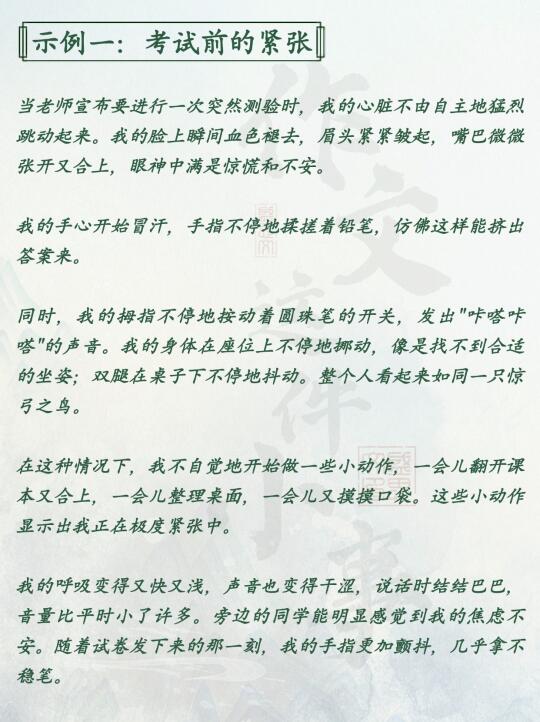 示例一：考试前的紧张
当老师宣布要进行一次突然测验时，我的心脏不由自主地猛烈
跳动起来。我的脸上瞬间血色褪去，眉头紧紧皱起，嘴巴微微
张开又合上，眼神中满是惊慌和不安。
我的手心开始冒汗，手指不停地揉搓着铅笔，仿佛这样能挤出
答案来。
同时，我的拇指不停地按动着圆珠笔的开关，发出"咔嗒咔
嗒"的声音。我的身体在座位上不停地挪动，像是找不到合适
的坐姿；双腿在桌子下不停地抖动。整个人看起来如同一只惊
弓之鸟。
在这种情况下，我不自觉地开始做一些小动作，一会儿翻开课
本又合上，一会儿整理桌面，一会儿又摸摸口袋。这些小动作
显示出我正在极度紧张中。
我的呼吸变得又快又浅，声音也变得干涩，说话时结结巴巴，
音量比平时小了许多。旁边的同学能明显感觉到我的焦虑不
安。随着试卷发下来的那一刻，我的手指更加颤抖，几乎拿不
稳笔。
作文这件小事